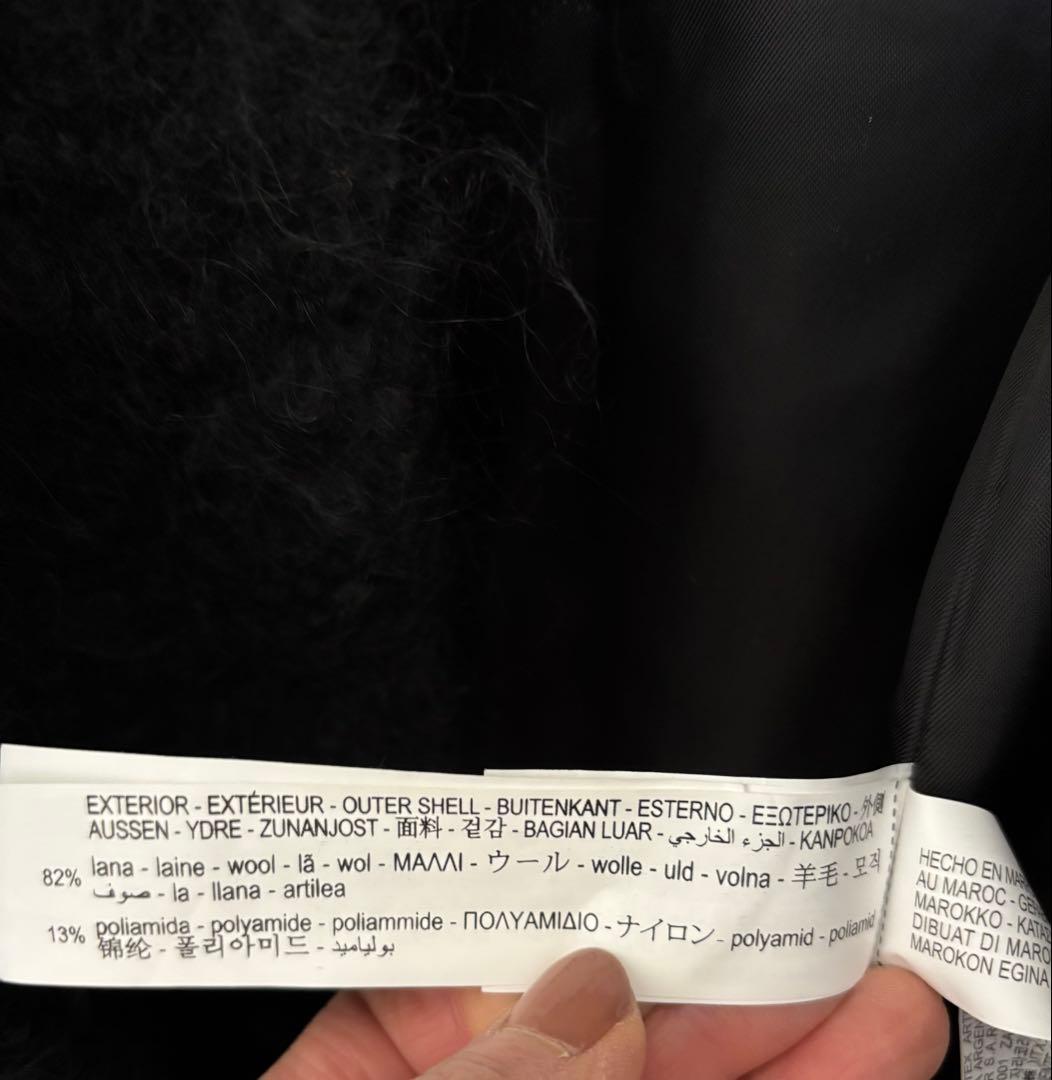 EXTERIOR - EXTÉRIEUR - OUTER SHELL - BUITENKANT - ESTERNO - ΕΞΩΤΕΡΙΚΟ - 外側
AUSSEN - YDRE - ZUNANJOST - 面料 - 겉감 - BAGIAN LUAR - الجزء الخارجي - KANPOKOA
82% lana - laine - wool - lã - wol - ΜΑΛΛΙ - ウール - wolle - uld - volna - 羊毛 - 모직
صوف - la - llana - artilea
13% poliamida - polyamide - poliammide - ΠΟΛΥΑΜΙΔΙΟ - ナイロン - polyamid - poliamid
锦纶 - 폴리아미드 - بولياميد
HECHO EN
AU MAROC -
MAROKKO -
DIBUAT DI
MAROKON EGINA